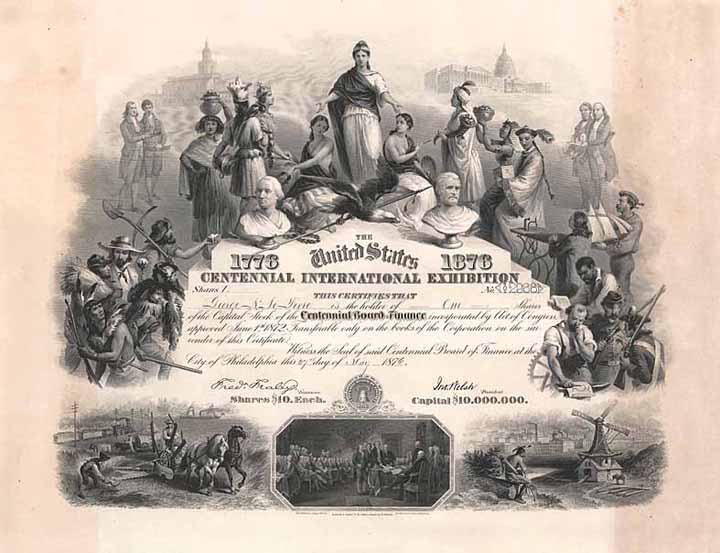 THE
1776 United States 1876
CENTENNIAL INTERNATIONAL EXHIBITION
Shares 1. No.
THIS CERTIFIES THAT
is the holder of One Shares
of the Capital Stock of the Centennial Board of Finance incorporated by Act of Congress
approved June 1st 1872. Transferable only on the books of the Corporation on the sur-
render of this Certificate.
Witness the Seal of said Centennial Board of Finance, at the
City of Philadelphia this 27th day of 1876.
Fredk Fraley Jno Welsh
Treasurer President
Shares $10. Each. Capital $10,000,000.